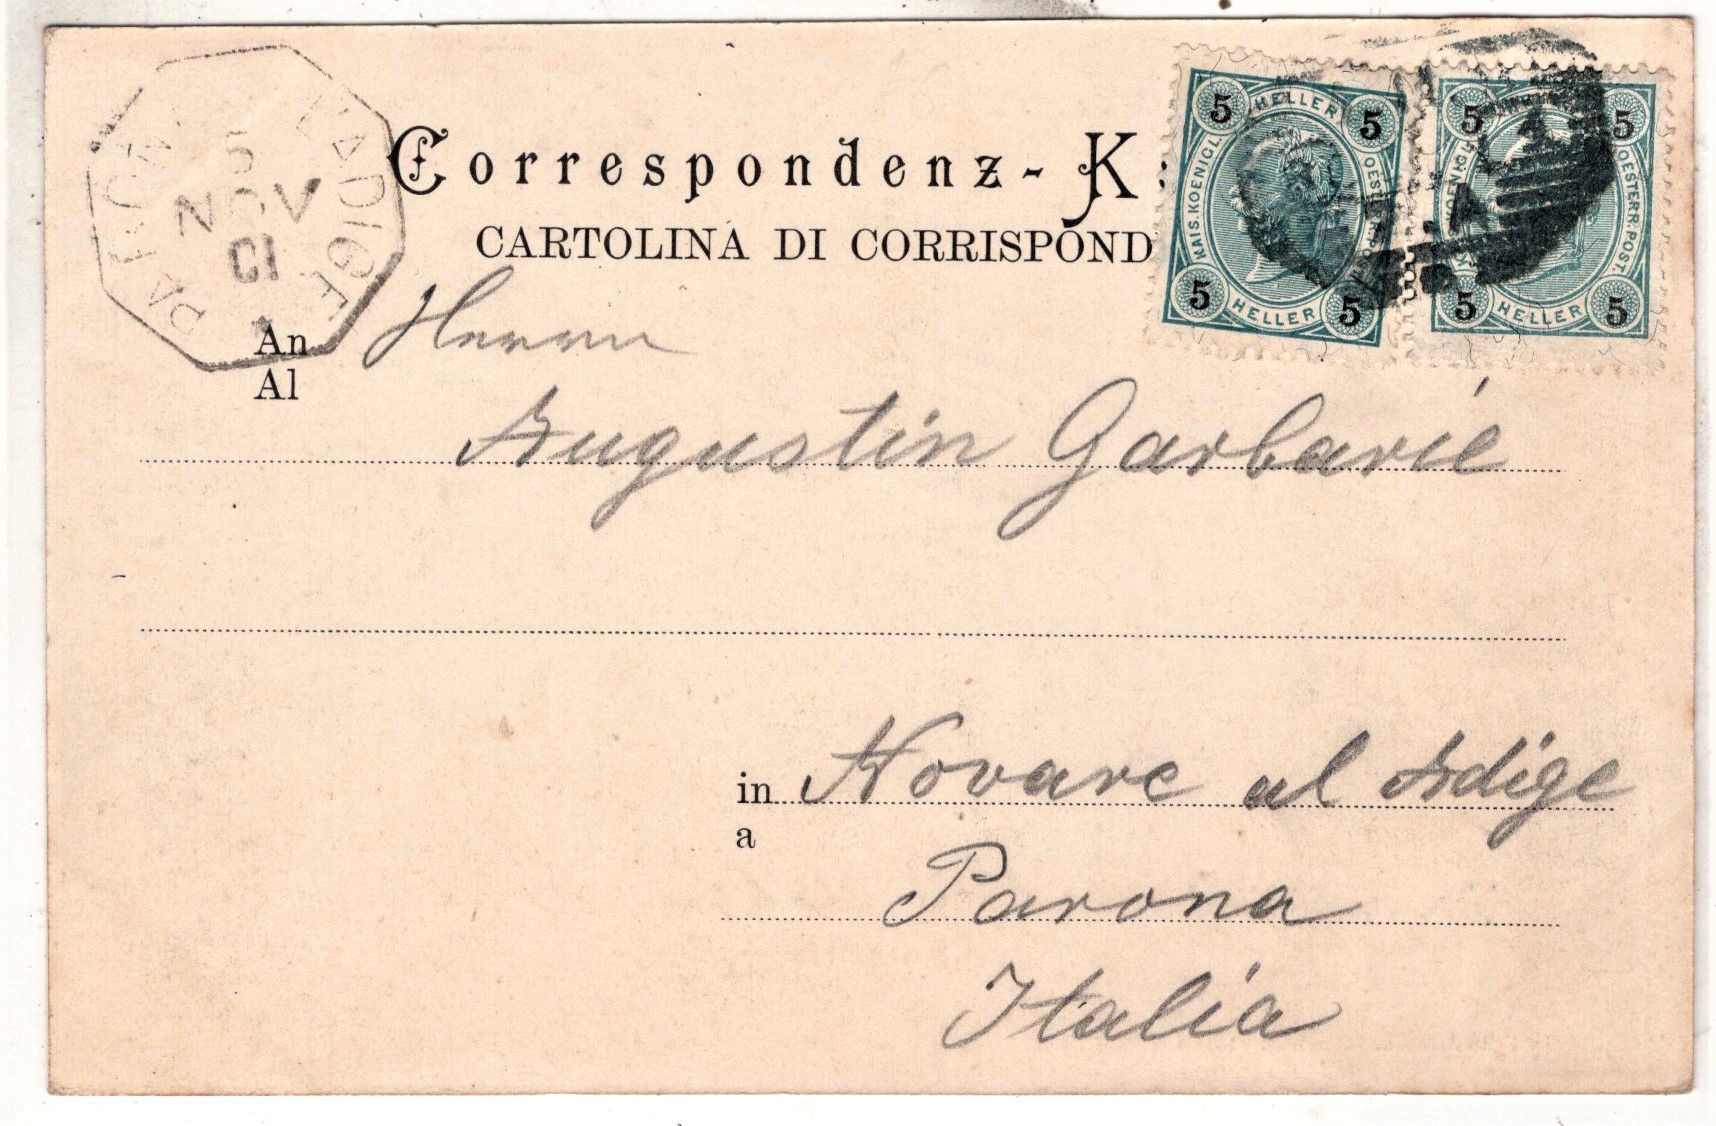 PARONA L'ADIGE
5
NOV
01
Correspondenz-K
CARTOLINA DI CORRISPOND
5 HELLER 5
KAIS. KOENIGL. OESTERR. POST.
5 HELLER 5
5 5
KAIS. KOENIGL. OESTERR. POST.
5 HELLER 5
An Herrn
Al
Augustin Garbarié
in Novare al Adige
a
Parona
Italia